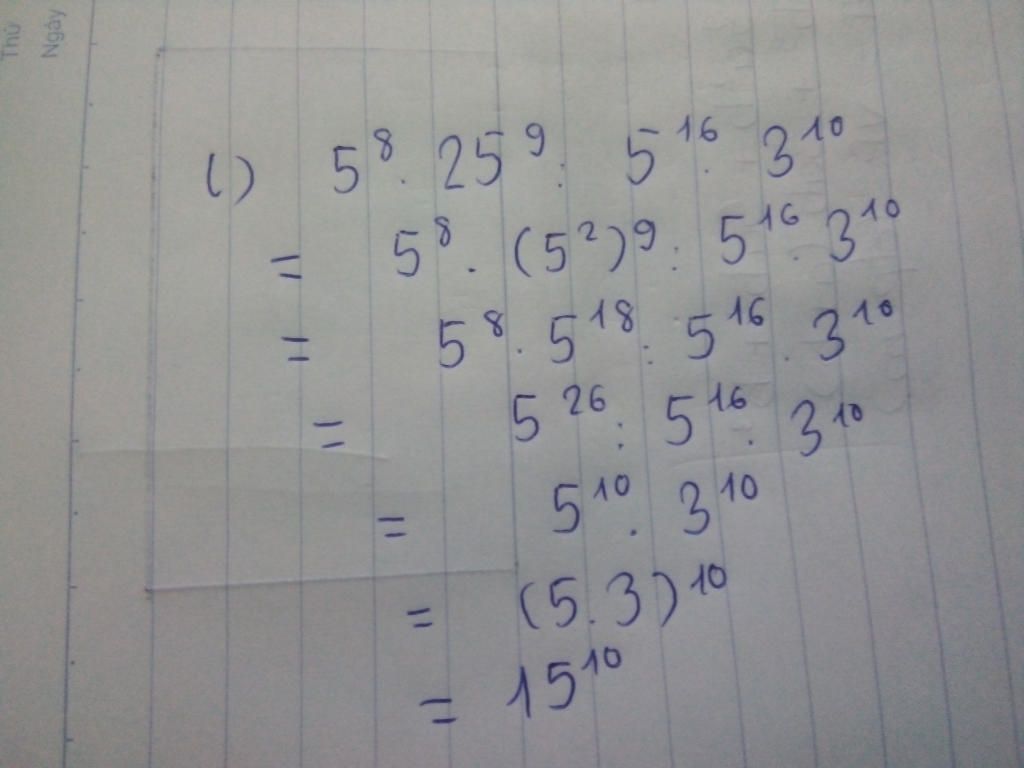 Thứ
Ngày
c) 5⁸ . 25⁹ : 5¹⁶ . 3¹⁰
= 5⁸ . (5²)⁹ : 5¹⁶ . 3¹⁰
= 5⁸ . 5¹⁸ : 5¹⁶ . 3¹⁰
= 5²⁶ : 5¹⁶ . 3¹⁰
= 5¹⁰ . 3¹⁰
= (5.3)¹⁰
= 15¹⁰